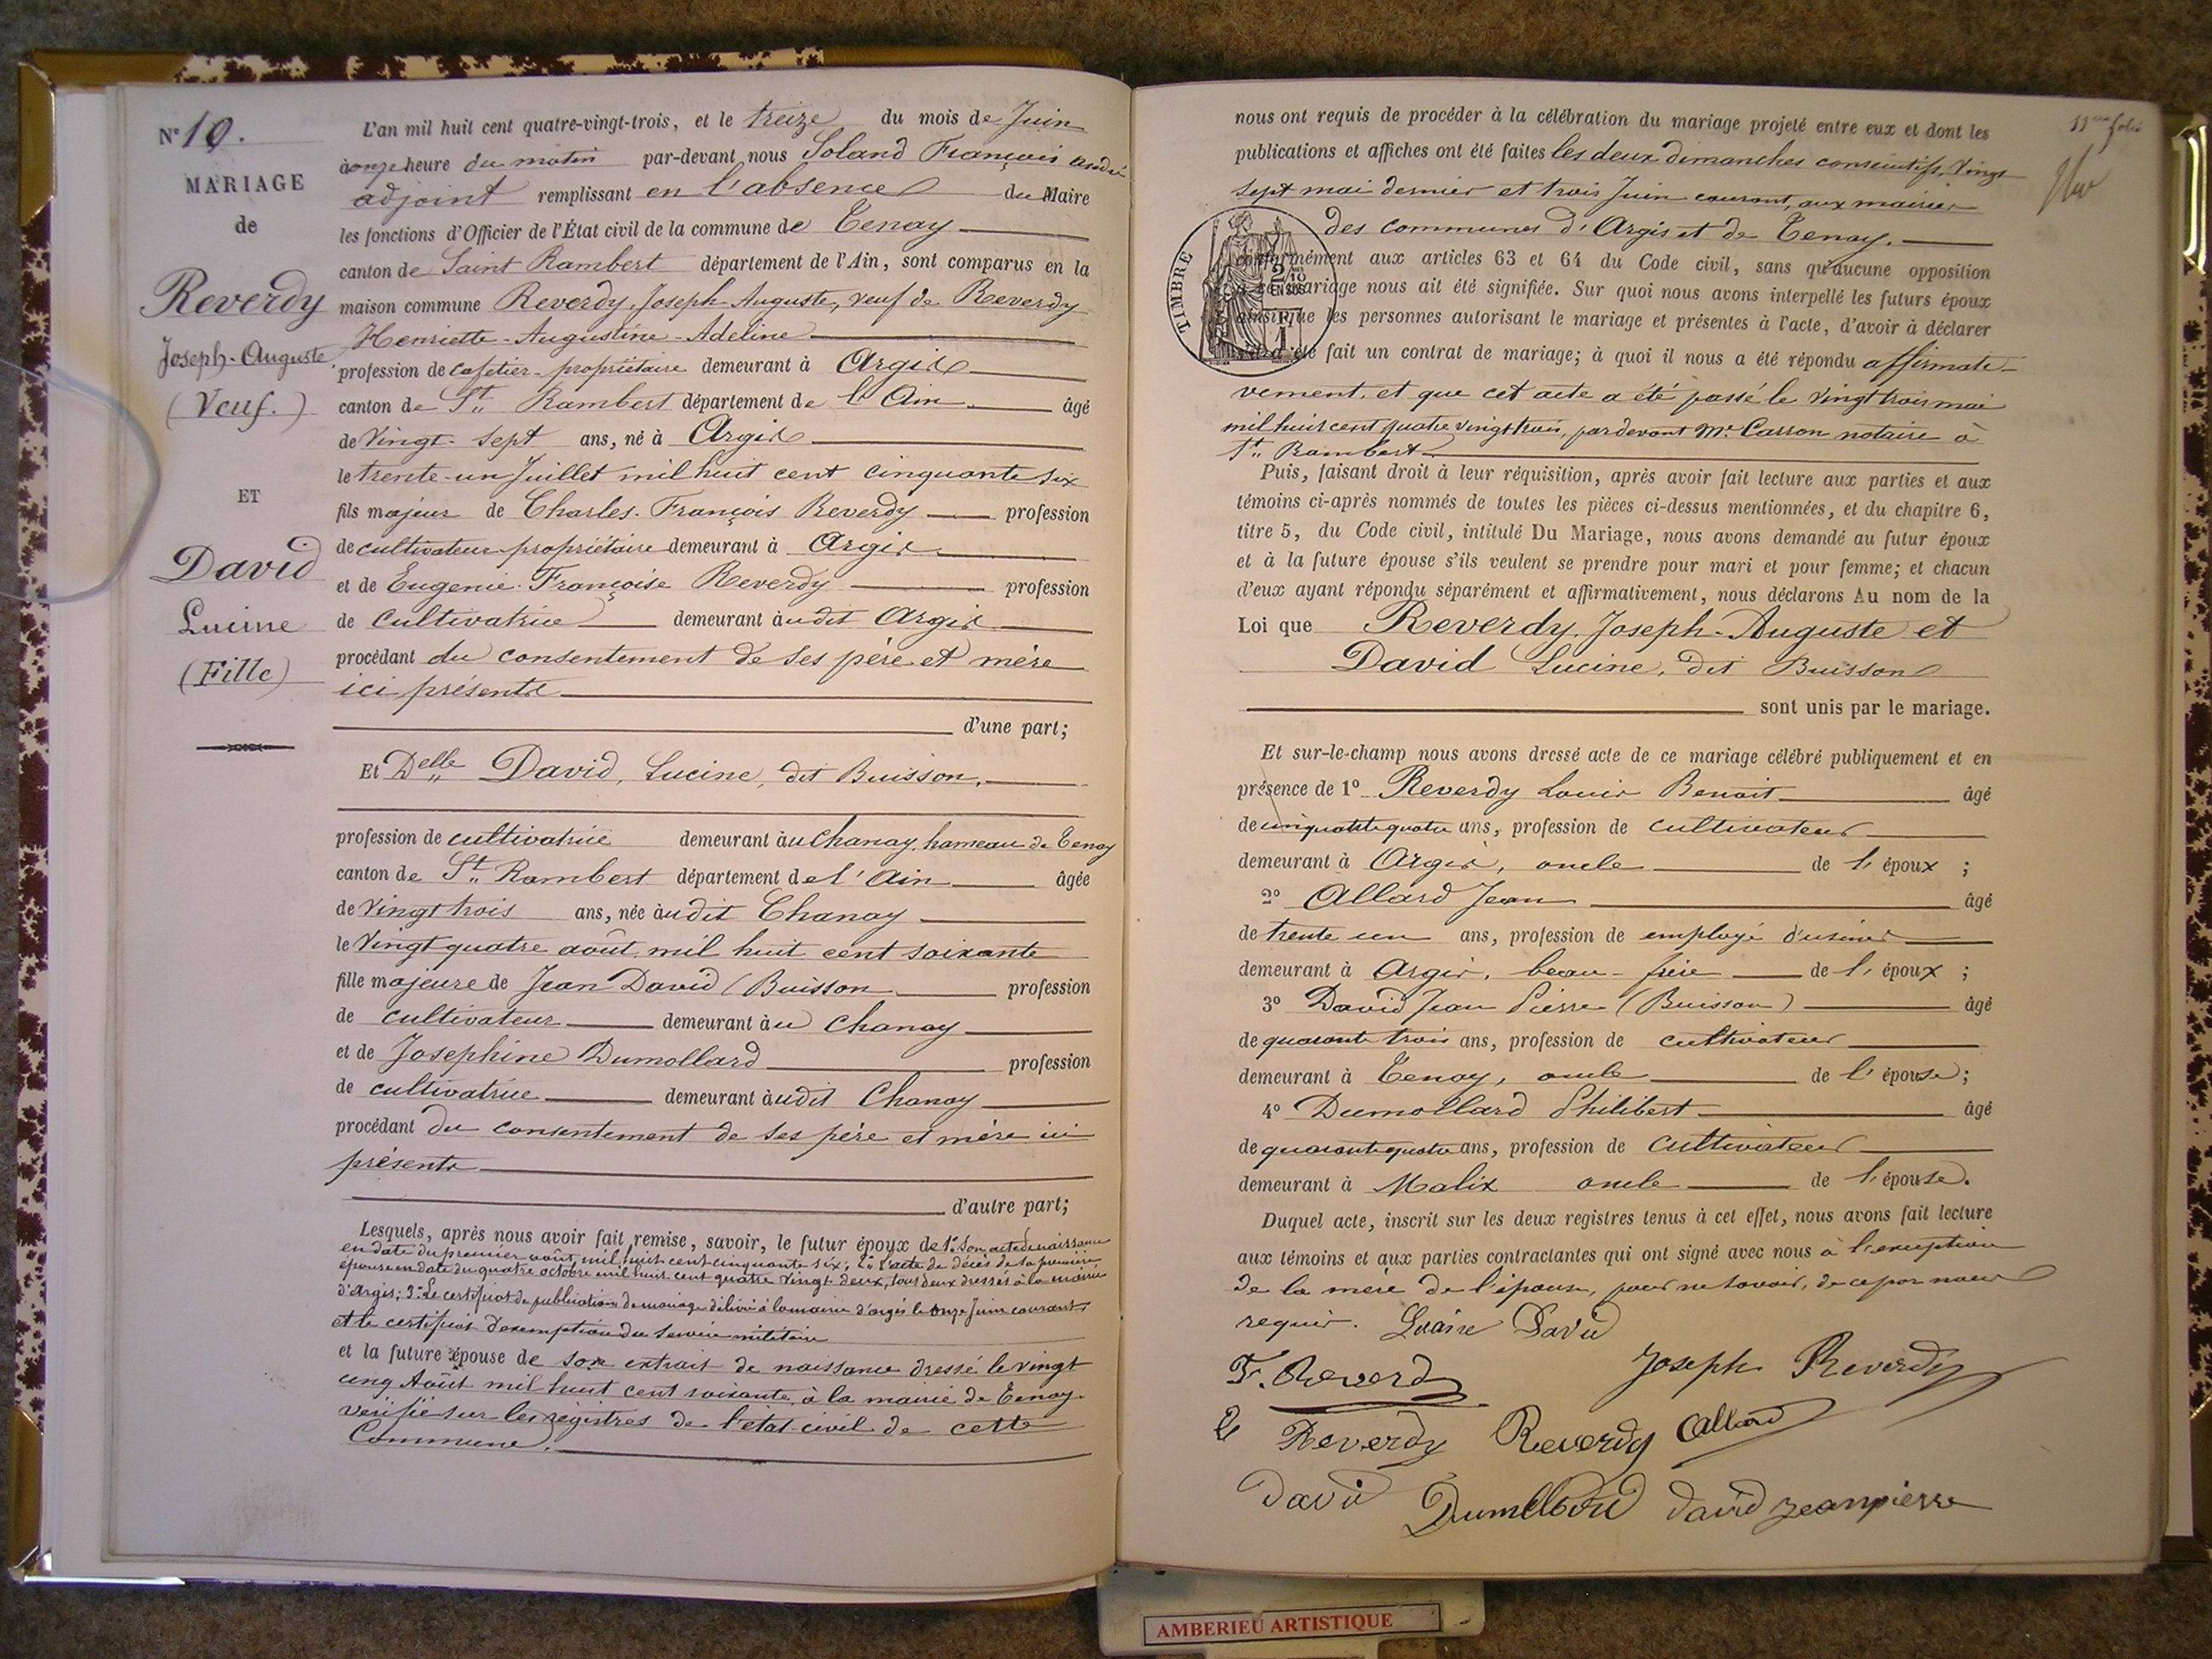 N° 10.
MARIAGE
de
Reverdy
Joseph-Auguste
(Veuf.)
ET
David
Lucine
(Fille)
L'an mil huit cent quatre-vingt-trois, et le treize du mois de Juin
à onze heure du matin par-devant nous Soland François André
adjoint remplissant en l'absence du Maire
les fonctions d'Officier de l'État civil de la commune de Tenay
canton de Saint Rambert département de l'Ain, sont comparus en la
maison commune Reverdy, Joseph Auguste, veuf de Reverdy
Henriette-Augustine-Adeline
profession de cafetier-propriétaire demeurant à Argis
canton de St. Rambert département de l'Ain âgé
de Vingt-sept ans, né à Argis
le trente-un Juillet mil huit cent cinquante six
fils majeur de Charles-François Reverdy profession
de cultivateur-propriétaire demeurant à Argis
et de Eugenie-Françoise Reverdy profession
de cultivatrice demeurant àudit Argis
procédant du consentement de ses père et mère
ici présents
d'une part;
Et Delle David, Lucine, dit Buisson,
profession de cultivatrice demeurant àu Chanay, hameau de Tenay
canton de St. Rambert département de l'Ain âgée
de Vingt trois ans, née àudit Chanay
le Vingt quatre août mil huit cent soixante
fille majeure de Jean David (Buisson profession
de cultivateur demeurant àu Chanay
et de Josephine Dumollard profession
de cultivatrice demeurant àudit Chanay
procédant du consentement de ses père et mère ici
présents
d'autre part;
Lesquels, après nous avoir fait remise, savoir, le futur époux de 1° Son acte de naissance
en date du premier août mil huit cent cinquante six; 2° l'acte de décès de sa première
épouse en date du quatre octobre mil huit cent quatre vingt-deux, tous deux dressés à la mairie
d'Argis; 3° Le certificat de publications de mariage délivré à la mairie d'Argis le onze Juin courant,
et le certificat d'exemption du service militaire
et la future épouse de son extrait de naissance dressé le vingt
cinq Août mil huit cent soixante, à la mairie de Tenay
vérifié sur les régistres de l'état-civil de cette
Commune.
11ème folio
nous ont requis de procéder à la célébration du mariage projeté entre eux et dont les
publications et affiches ont été faites les deux dimanches consécutifs, Vingt
sept mai dernier et trois Juin courant, aux mairies
des communes d'Argis et de Tenay.
TIMBRE
conformément aux articles 63 et 64 du Code civil, sans qu'aucune opposition
à ce mariage nous ait été signifiée. Sur quoi nous avons interpellé les futurs époux
ainsi que les personnes autorisant le mariage et présentes à l'acte, d'avoir à déclarer
s'il a été fait un contrat de mariage; à quoi il nous a été répondu affirmati-
vement, et que cet acte a été passé le Vingt trois mai
mil huit cent quatre vingt trois, par devant Me Carron notaire à
St. Rambert
Puis, faisant droit à leur réquisition, après avoir fait lecture aux parties et aux
témoins ci-après nommés de toutes les pièces ci-dessus mentionnées, et du chapitre 6,
titre 5, du Code civil, intitulé Du Mariage, nous avons demandé au futur époux
et à la future épouse s'ils veulent se prendre pour mari et pour femme; et chacun
d'eux ayant répondu séparément et affirmativement, nous déclarons Au nom de la
Loi que Reverdy, Joseph-Auguste et
David Lucine, dit Buisson
sont unis par le mariage.
Et sur-le-champ nous avons dressé acte de ce mariage célébré publiquement et en
présence de 1° Reverdy Louis Benoit âgé
de cinquante quatre ans, profession de cultivateur
demeurant à Argis, oncle de l'époux ;
2° Allard Jean âgé
de trente un ans, profession de employé d'usines
demeurant à Argis, beau-frère de l'époux ;
3° David Jean Pierre (Buisson) âgé
de quarante trois ans, profession de cultivateur
demeurant à Tenay, oncle de l'épouse;
4° Dumollard Philibert âgé
de quarante quatre ans, profession de cultivateur
demeurant à Malix oncle de l'épouse.
Duquel acte, inscrit sur les deux registres tenus à cet effet, nous avons fait lecture
aux témoins et aux parties contractantes qui ont signé avec nous à l'exception
de la mère de l'épouse, pour ne savoir, de ce par nous
requis. Lucine David
F. Reverdy Joseph Reverdy
E Reverdy Reverdy Allard
David Dumollard David jeanpierre
AMBERIEU ARTISTIQUE